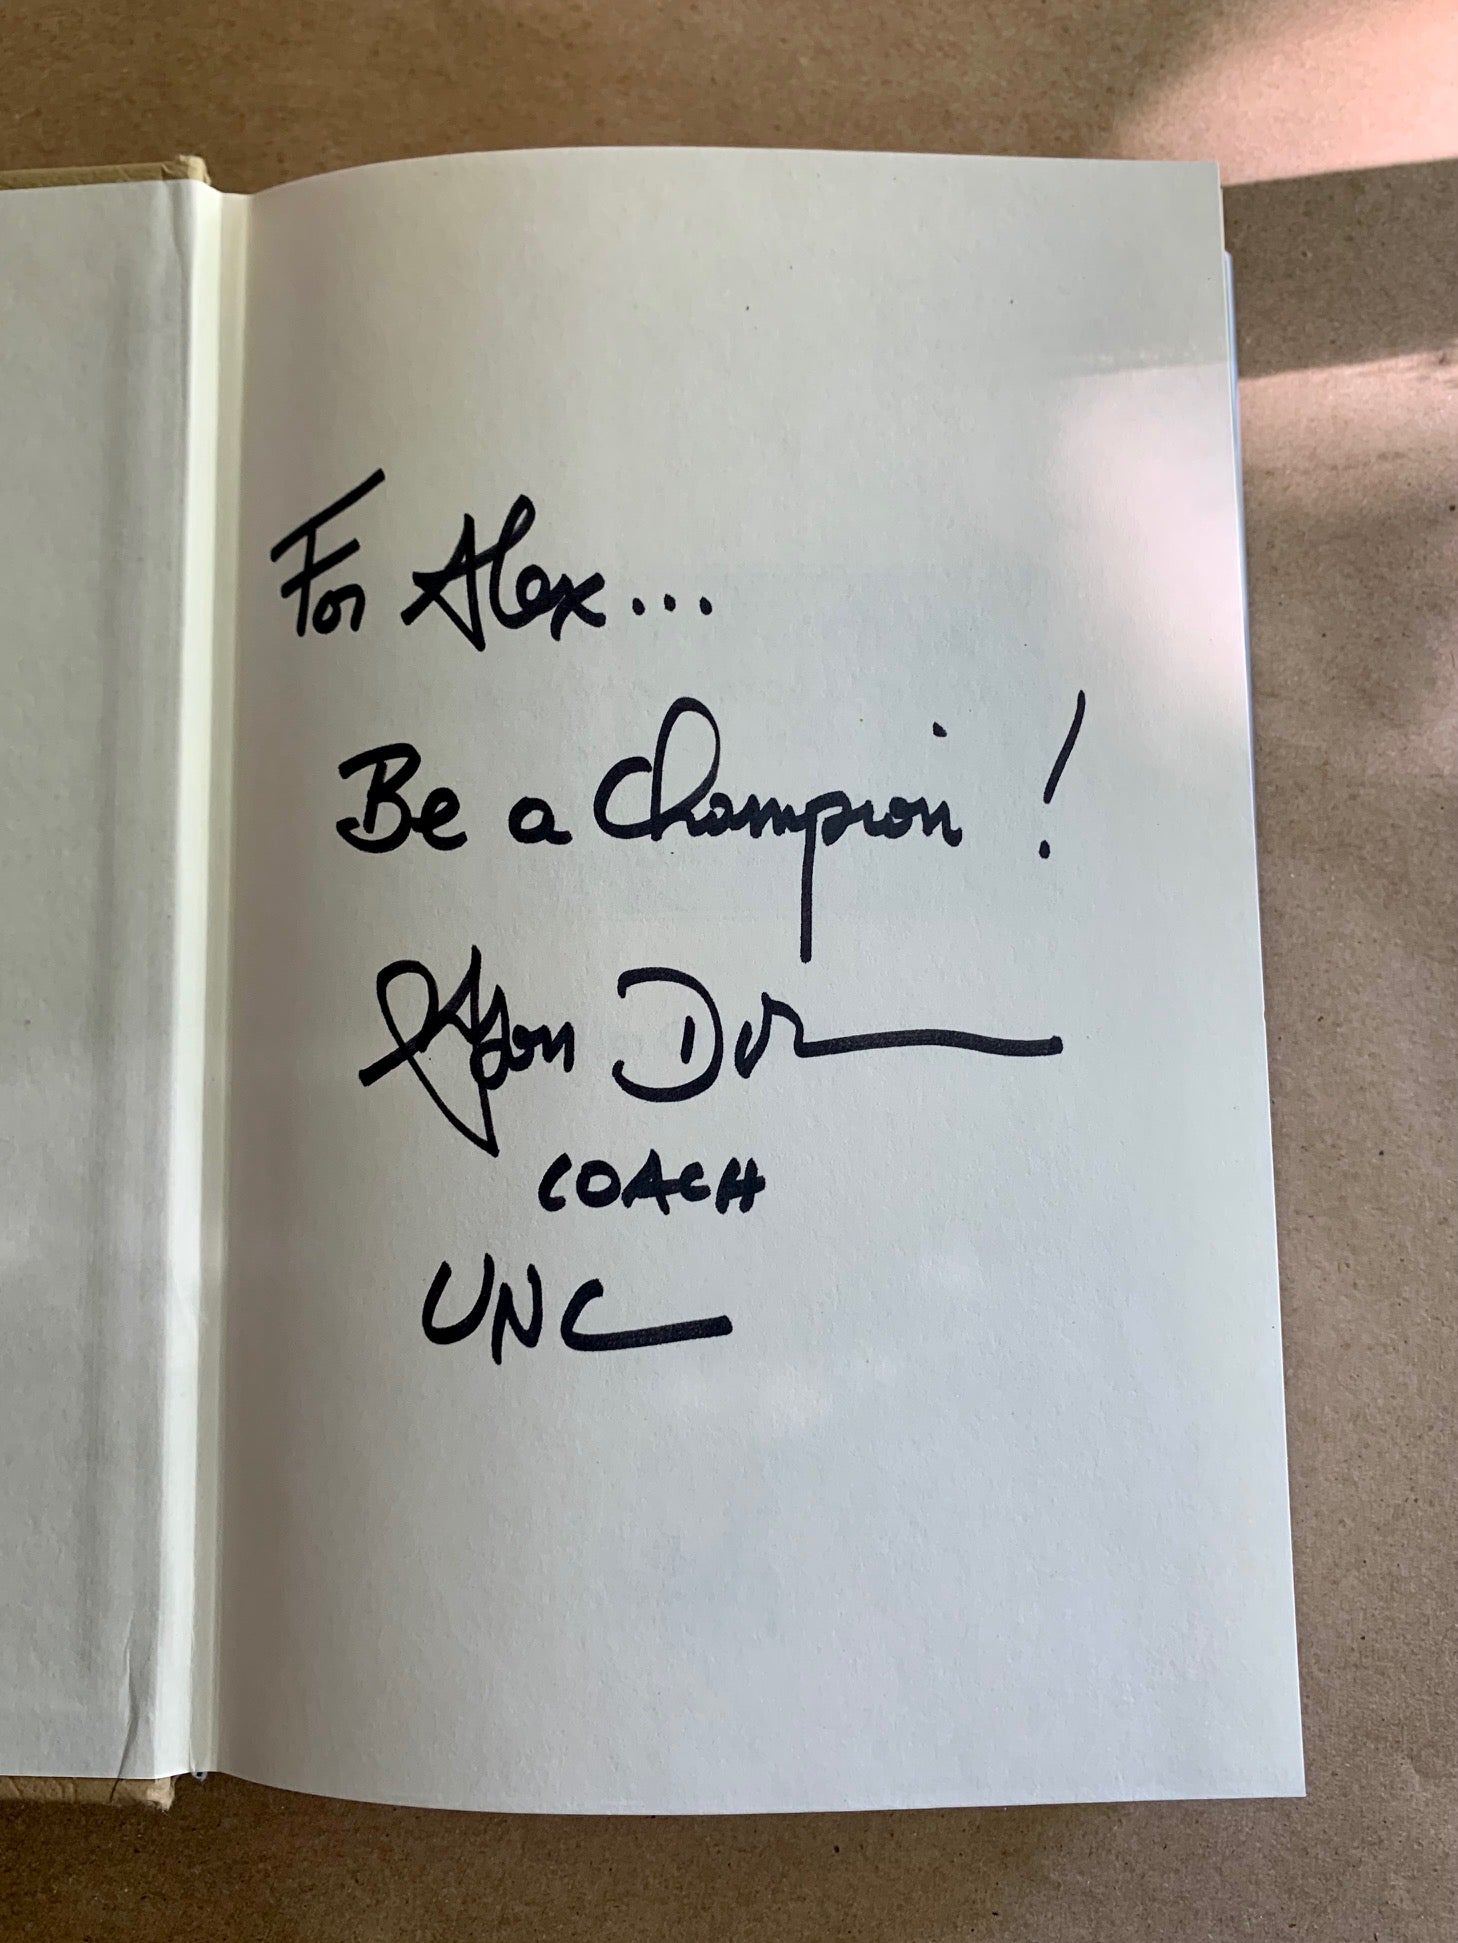 For Alex...
Be a Champion!
Anson Dor
COACH
UNC